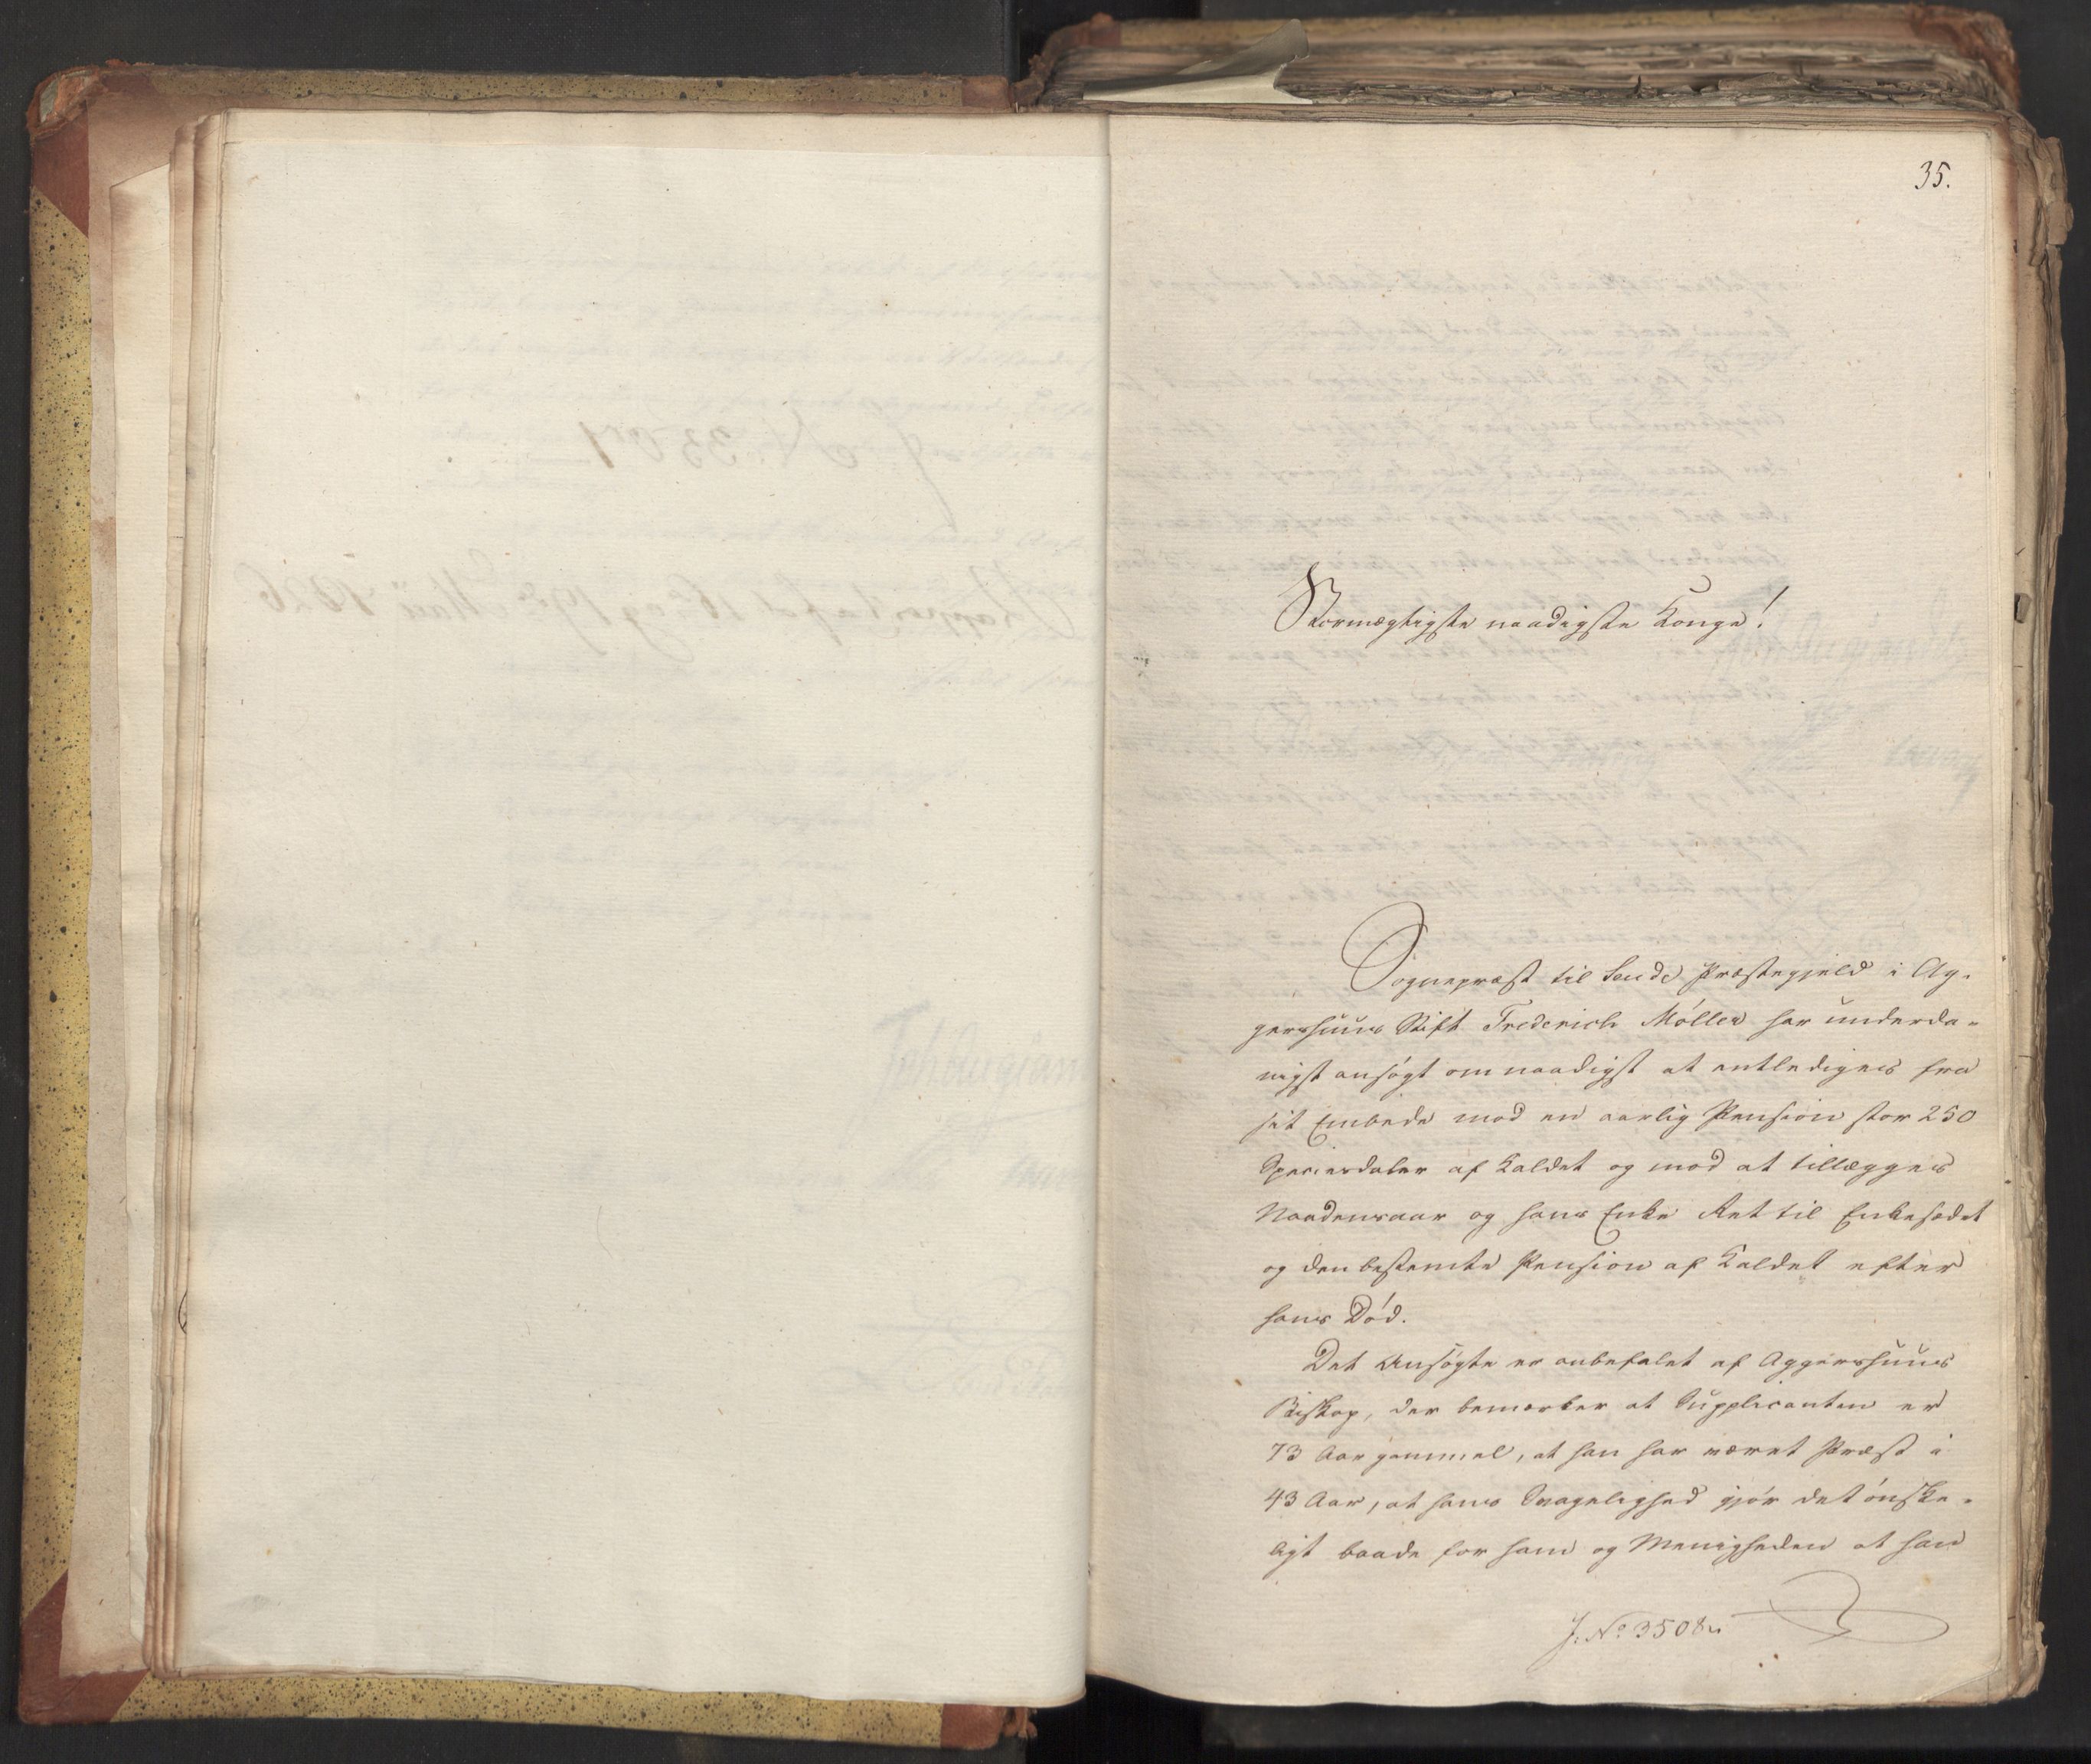 35.
Stormægtigste naadigste Konge!
Sognepræst til Sende Præstegjeld i Ag-
gershuus Stift Frederich Møller har underda-
nigst ansøgt om naadigst at entlediges fra
sit Embede mod en aarlig Pension stor 250
Speciesdaler af Kaldet og mod at tillægges
Naadensaar og hans Enke Ret til Enkesædet
og den bestemte Pension af Kaldet efter
hans Død.
Det Ansøgte er anbefalet af Aggershuus
Biskop, der bemærker at Supplicanten er
73 Aar gammel, at han har været Præst i
43 Aar, at hans Svagelighed gjør det ønske-
ligt baade for ham og Menigheden at han
J. No 3508